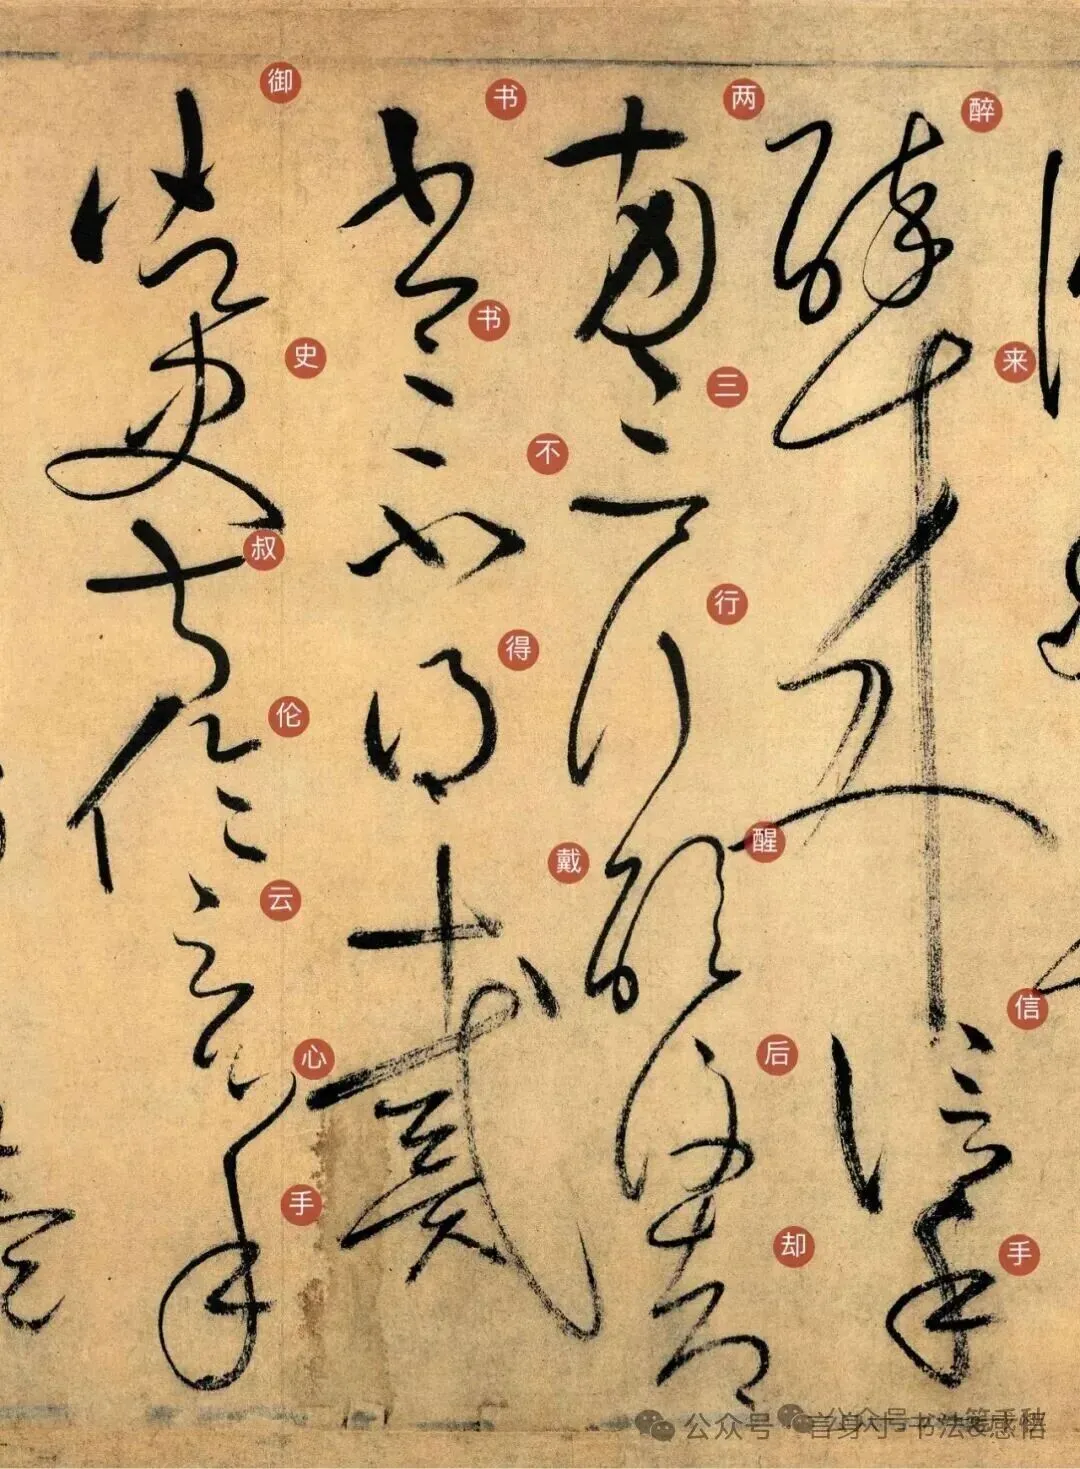 醉来信手
两三行醒后却
书书不得戴
御史叔伦云心手
公众号 · 言身寸-书法&感悟